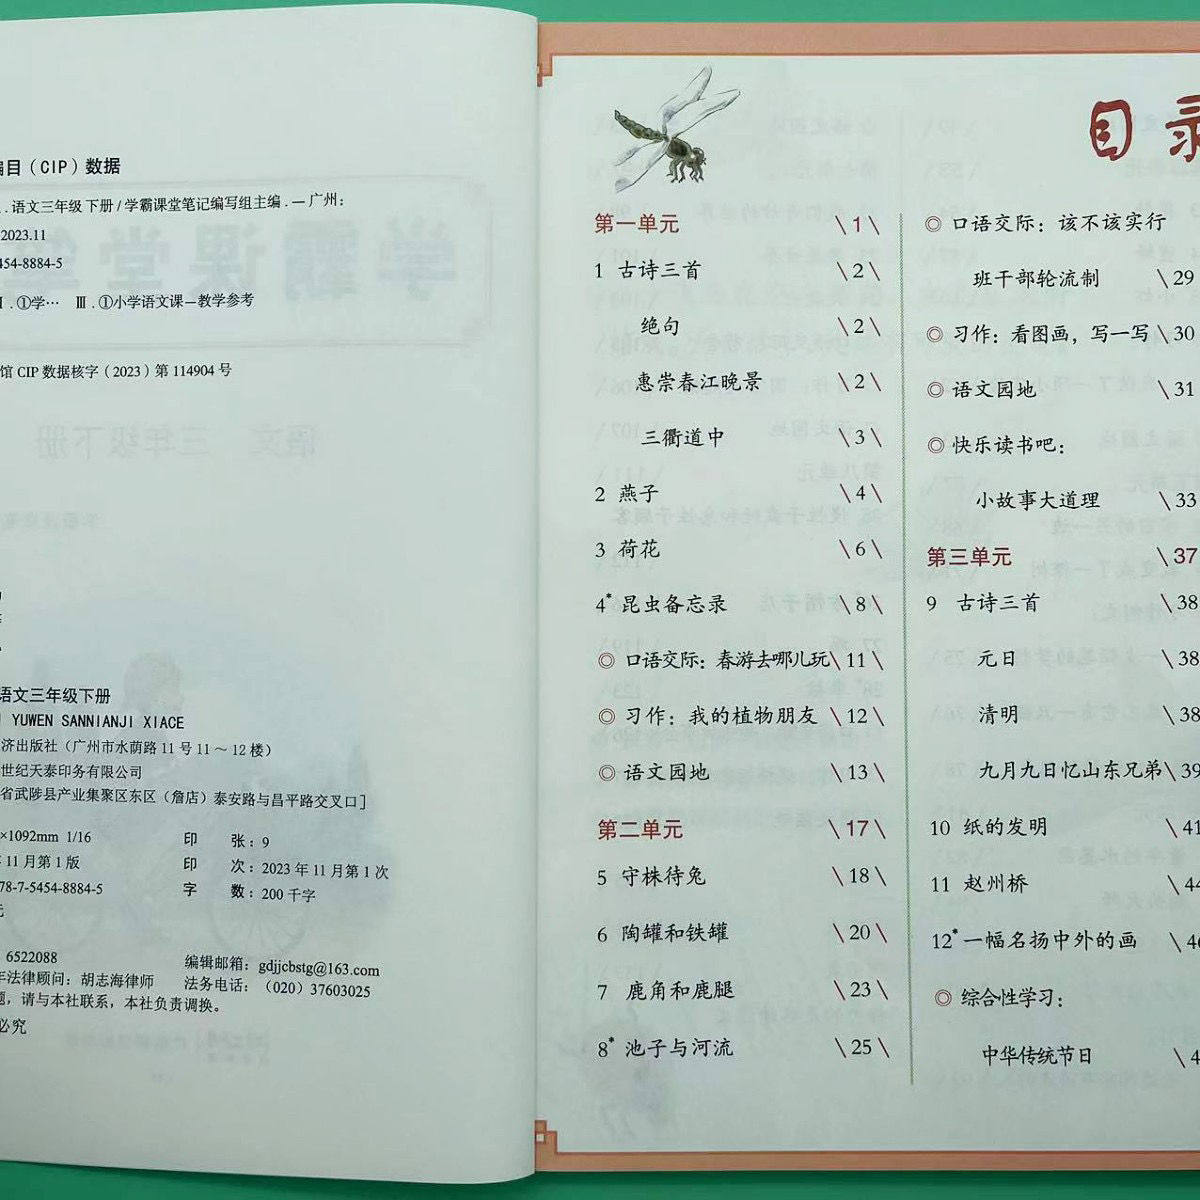 编目（CIP）数据
. 语文三年级 下册 / 学霸课堂笔记编写组主编 . — 广州：
2023.11
454-8884-5
Ⅰ . ①学… Ⅲ . ①小学语文课—教学参考
馆 CIP 数据核字（2023）第 114904 号
语文三年级下册
YUWEN SANNIANJI XIACE
济出版社（广州市水荫路 11 号 11 ～ 12 楼）
世纪天泰印务有限公司
省武陟县产业集聚区东区（詹店）泰安路与昌平路交叉口］
×1092mm 1/16
印 张：9
11 月第 1 版
印 次：2023 年 11 月第 1 次
78-7-5454-8884-5
字 数：200 千字
元
6522088
编辑邮箱：gdjjcbstg@163.com
年法律顾问：胡志海律师
法务电话：（020）37603025
题，请与本社联系，本社负责调换。
必究
目录
第一单元 \ 1 \
1 古诗三首 \ 2 \
绝句 \ 2 \
惠崇春江晚景 \ 2 \
三衢道中 \ 3 \
2 燕子 \ 4 \
3 荷花 \ 6 \
4* 昆虫备忘录 \ 8 \
◎ 口语交际：春游去哪儿玩 \ 11 \
◎ 习作：我的植物朋友 \ 12 \
◎ 语文园地 \ 13 \
第二单元 \ 17 \
5 守株待兔 \ 18 \
6 陶罐和铁罐 \ 20 \
7 鹿角和鹿腿 \ 23 \
8* 池子与河流 \ 25 \
◎ 口语交际：该不该实行
班干部轮流制 \ 29
◎ 习作：看图画，写一写 \ 30
◎ 语文园地 \ 31
◎ 快乐读书吧：
小故事大道理 \ 33
第三单元 \ 37
9 古诗三首 \ 38
元日 \ 38
清明 \ 38
九月九日忆山东兄弟 \ 39
10 纸的发明 \ 41
11 赵州桥 \ 44
12* 一幅名扬中外的画 \ 46
◎ 综合性学习：
中华传统节日 \ 4